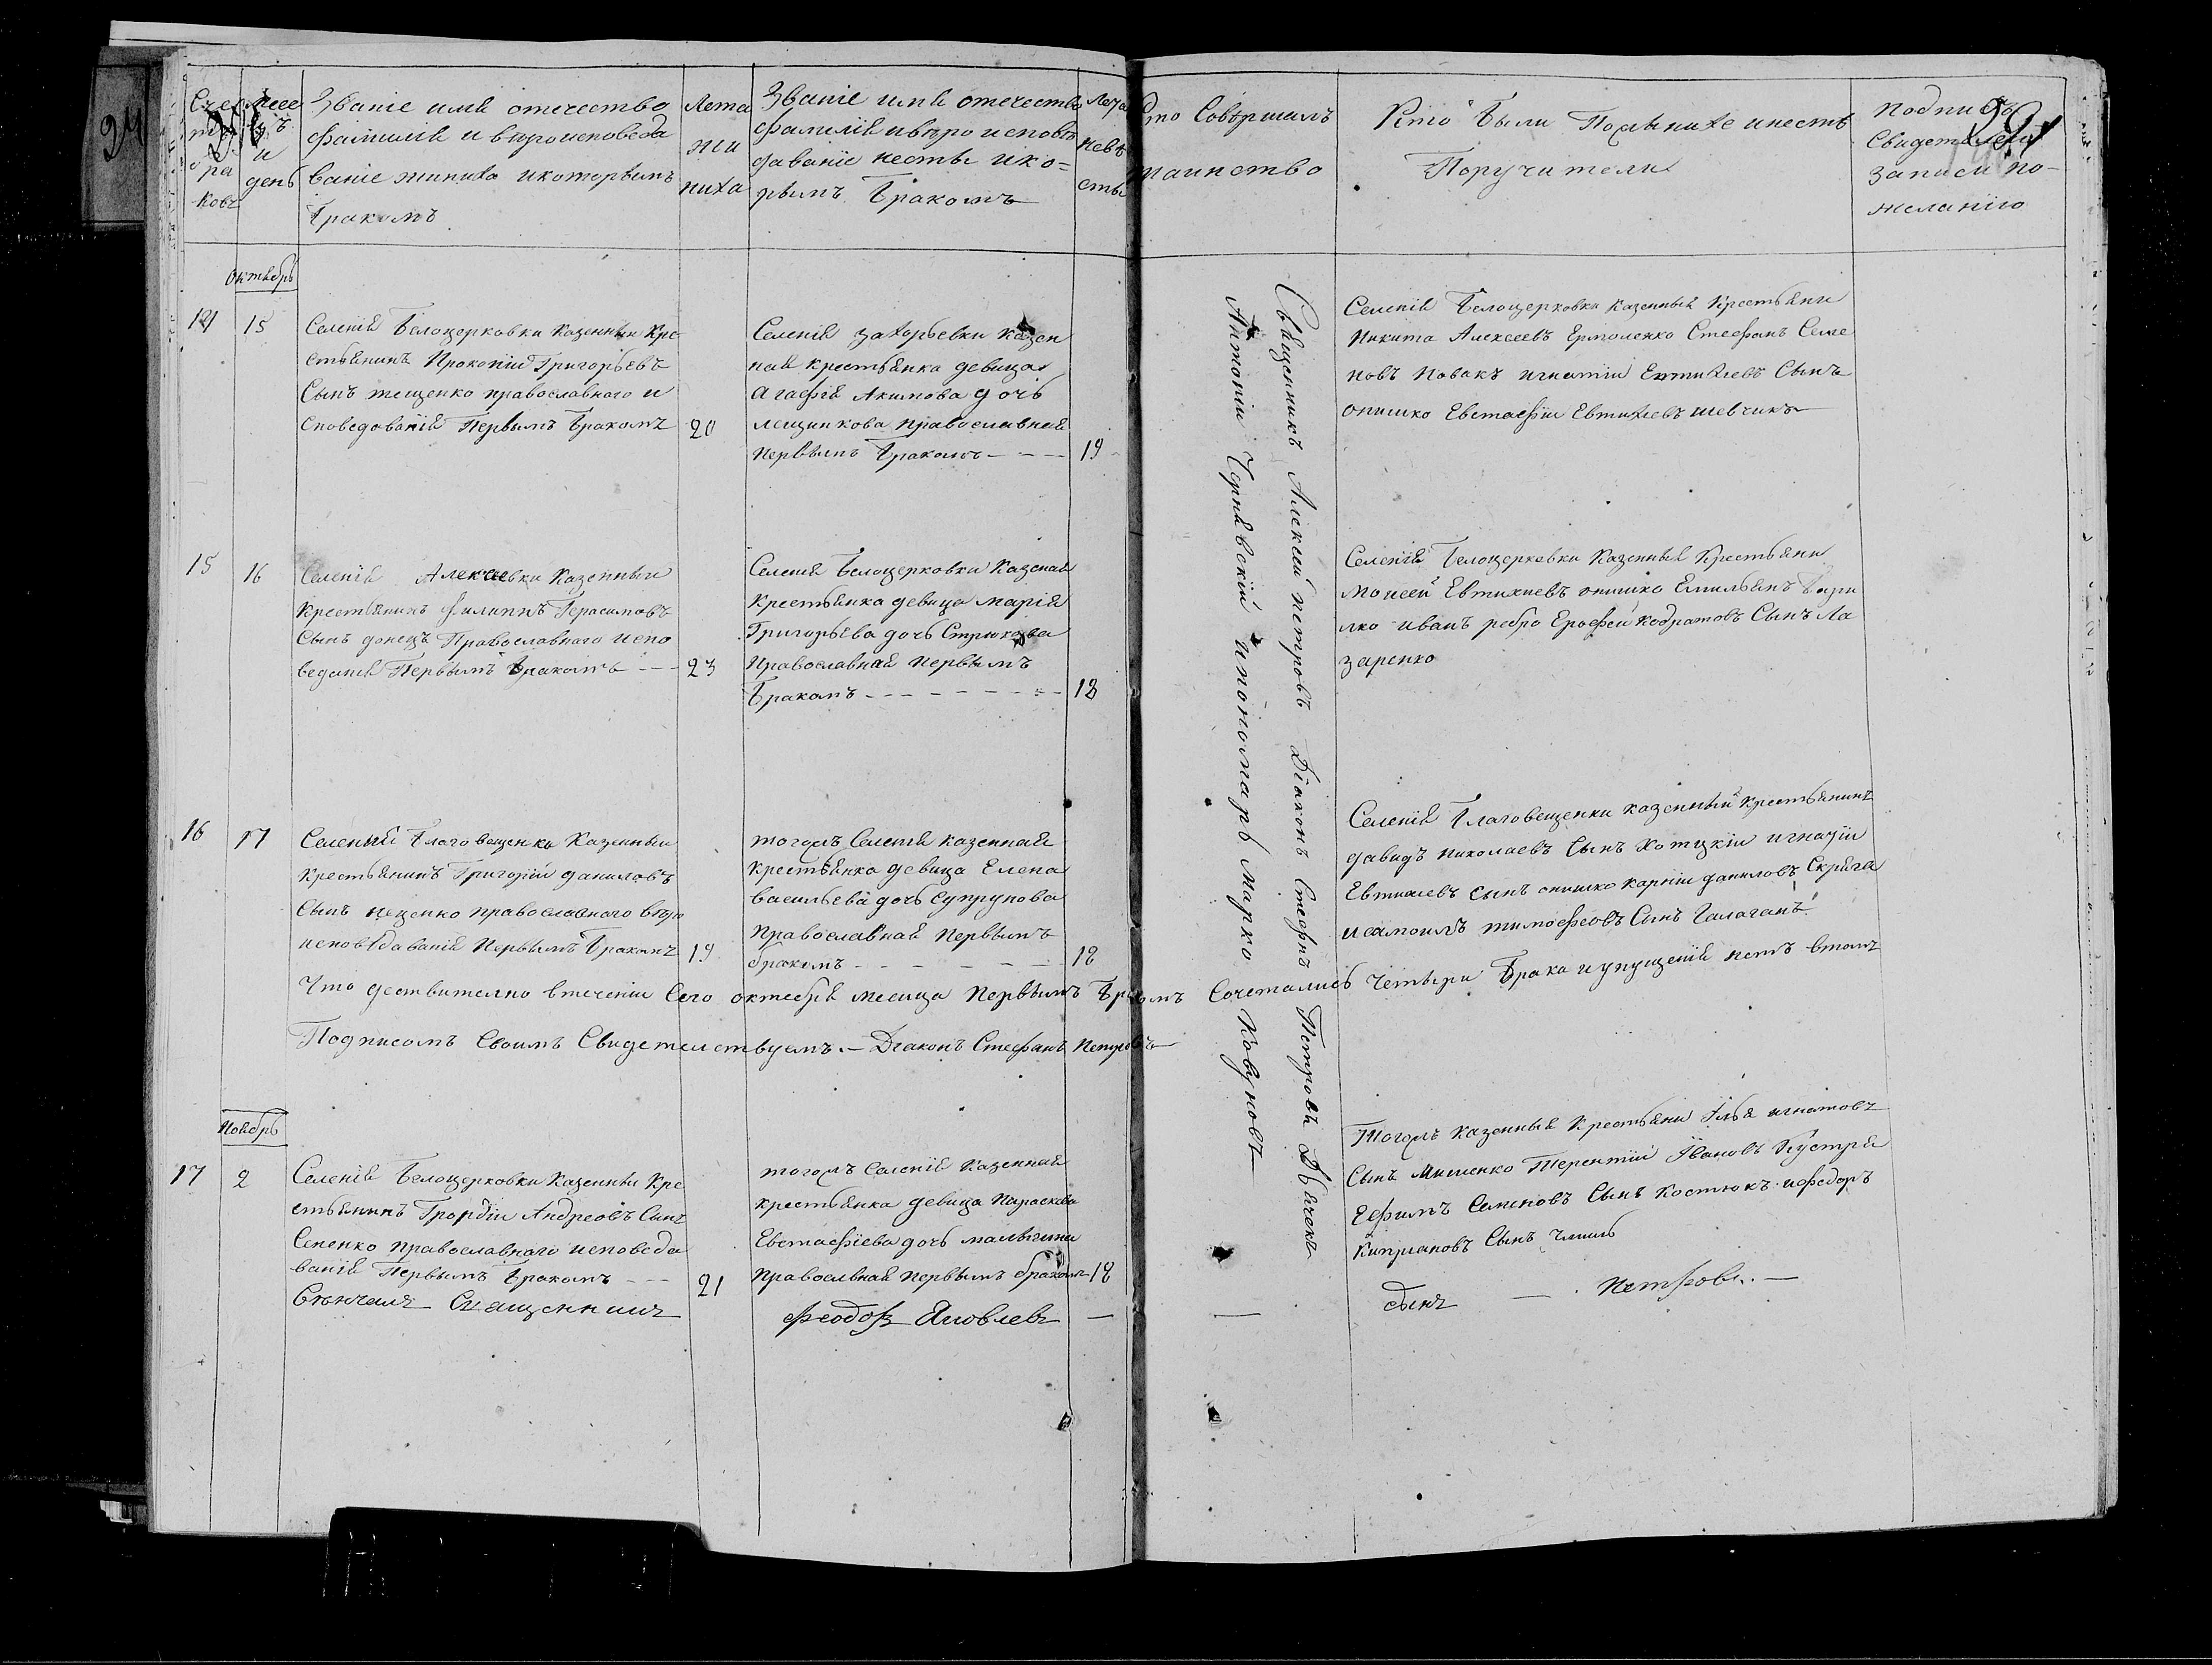 Званіе имя отечество
фамилія и вероисповеда
ваніе жениха и которымъ
бракомъ
Лета
же
ниха
Званіе имя отечество
фамилія и веро исповѣ
даваніе несты и ко=
рымъ Бракомъ
Лета
невѣ
сты
Кто Совершилъ
таинство
Кто Были Пожениха и несты
Поручители
Подписъ
Свидетелей
Записи по-
желанію
Октябрь
14
15
Селенія Белоцерковки Казенный Кре
стьянинъ Прокопій Григорьевъ
Сынъ тещенко православнаго и
споведованія Первымъ Бракомъ
20
Селенія захорьевки казен
ная крестьянка девица
Агафія Акимова дочь
лещинкова православная
первымъ Бракомъ - - -
19
Селенія Белоцерковки Казенныя Крестьяни
Никита Алексеевъ Ермоленко Стефанъ Семе
новъ Новакъ игнатій Евтихіевъ Сынъ
онишко Евстафіи Евтихіевъ шевчикъ
15
16
Селенія Алексеевки Казенныи
Крестьянинъ Филиппъ Герасимовъ
Сынъ донецъ Православнаго испо
веданія Первымъ Бракомъ - - -
23
Селенія Белоцерковки Казеная
Крестьянка девица марія
Григорьева дочь Стрюкова
Православная первымъ
Бракомъ - - - - - - -
18
Селенія Белоцерковки Казенныя Крестьяни
Моисей Евтихиевъ онишко Емильянъ Гаври
лко иванъ ребро Ерофеи кодратовъ Сынъ Ла
заренко
16
17
Селеныя Благовещенка Казенныи
крестьянинъ Григорій даниловъ
Сынъ пещенко православного веро
исповѣдаванія Первымъ Бракомъ
19
тогожъ Селенія казенная
крестьянка девица Елена
васильева дочь Супрунова
православная первымъ
бракомъ - - - - - -
18
Селенія Благовещенки казенный крестьянинъ
давидъ николаевъ Сынъ Хотцкіи игнатіи
Евтихиевъ сынъ онишко карпіи даниловъ Скряга
и самоилъ тимофеовъ Сынъ Галаганъ
Что дествително втеченіи Сего октября месяца Первымъ Бракомъ Сочеталисъ Четыри Брака и упущеній нетъ втомъ
Подписомъ Своимъ Свидетелствуемъ. - Діаконъ Стефанъ Петровъ
Священникъ Алексей петровъ Діаконъ Стефнъ Петровъ Дьячекъ
Антоніи Чернявскій и пономаръ Марко Ковуновъ
Ноябрь
17
2
Селенія Белоцерковки Казенныи Кре
стьянинъ Гордіи Андреовъ Сынъ
Сененко православнаго исповеда
ванія Первымъ Бракомъ - - -
21
тогожъ Селенія Казенная
крестьянка девица Параскева
Евстафіева дочь малыгина
православная первымъ бракомъ
18
Тогожъ казенныя Крестьяни Илья игнатовъ
Сынъ Мишенко Терентіи Івановъ Быстрія
Ефимъ Семеновъ Сынъ Костюкъ и федоръ
Киприановъ Сынъ Чмиль
Венчалъ Священникъ Феодоръ Яковлевъ — — сынъ — Петровъ. —